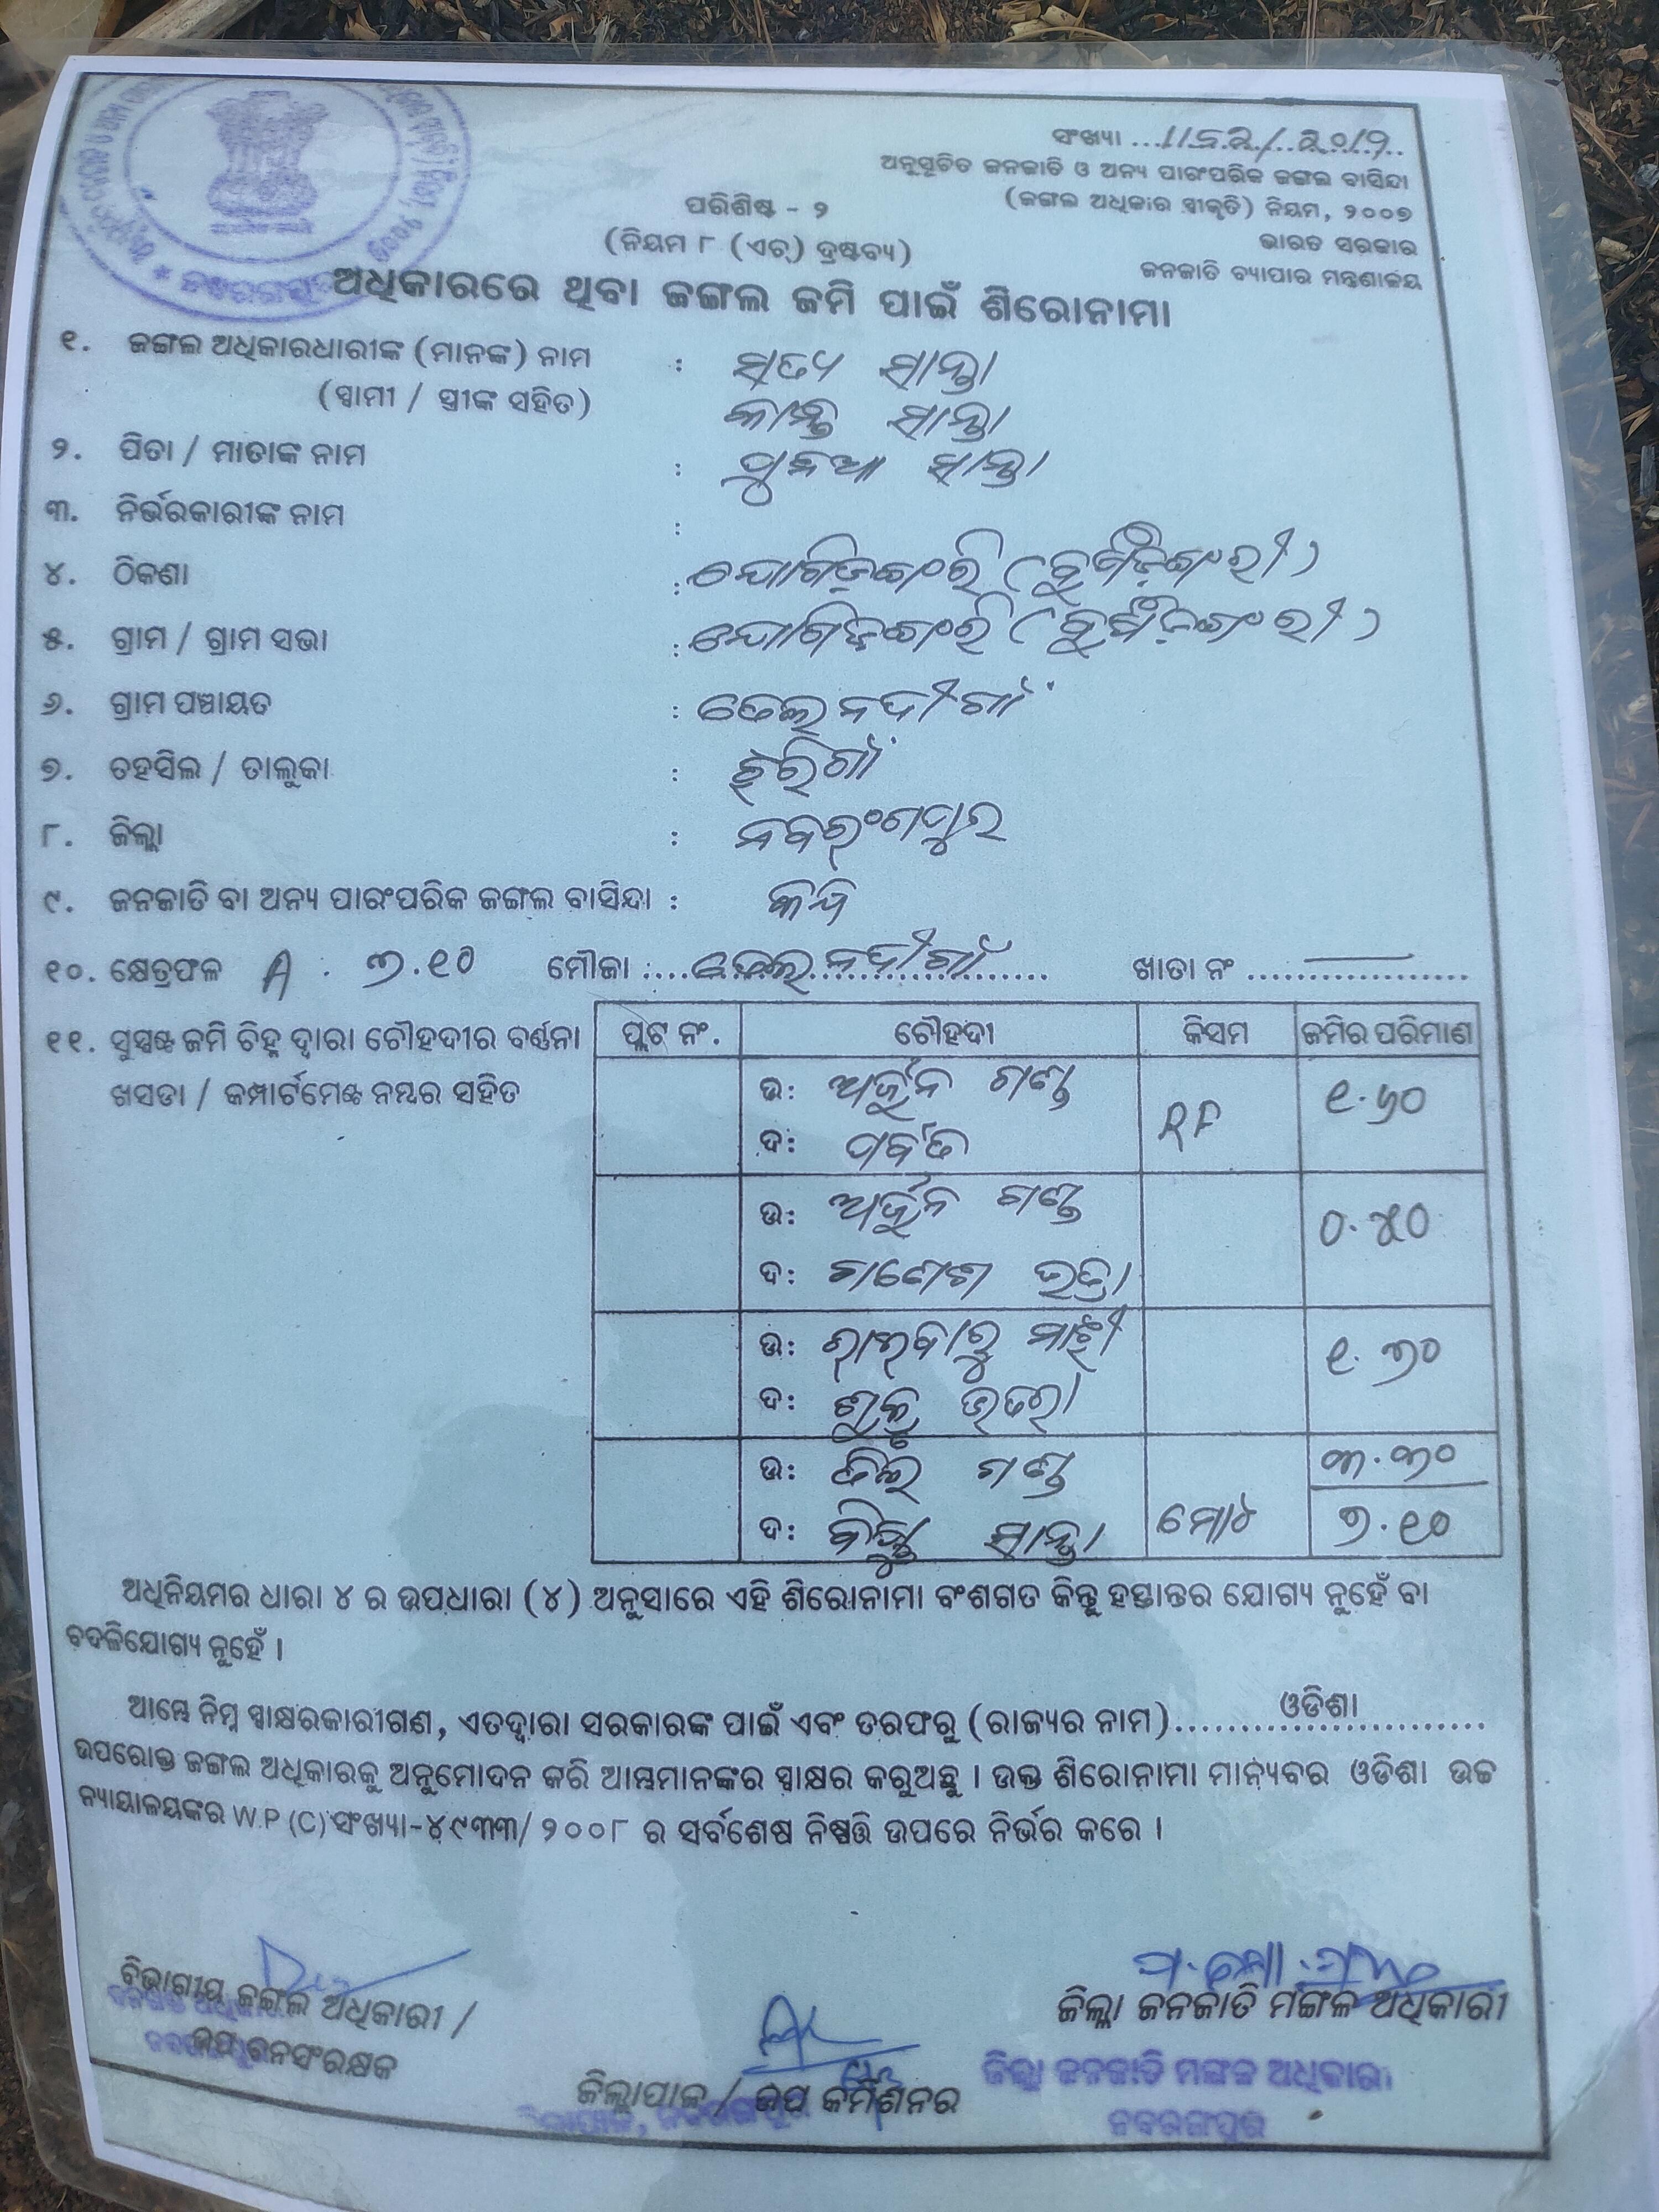 ସଂଖ୍ୟା
ଅନୁସୂଚିତ ଜନଜାତି ଓ ଅନ୍ୟ ପାରଂପରିକ ଜଙ୍ଗଲ ବାସିନ୍ଦା
(ଜଙ୍ଗଲ ଅଧିକାର ସ୍ୱୀକୃତି) ନିୟମ, ୨୦୦୭
ଭାରତ ସରକାର
ଜନଜାତି ବ୍ୟାପାର ମନ୍ତ୍ରଣାଳୟ
ପରିଶିଷ୍ଟ - ୨
(ନିୟମ ୮ (ଏଚ୍) ଦ୍ରଷ୍ଟବ୍ୟ)
ଅଧିକାରରେ ଥିବା ଜଙ୍ଗଲ ଜମି ପାଇଁ ଶିରୋନାମା
୧. ଜଙ୍ଗଲ ଅଧିକାରଧାରୀଙ୍କ (ମାନଙ୍କ) ନାମ : ସତ୍ୟ ସାନ୍ତା
(ସ୍ୱାମୀ / ସ୍ତ୍ରୀଙ୍କ ସହିତ) ସାନ୍ତା
୨. ପିତା / ମାତାଙ୍କ ନାମ : ସାନ୍ତା
୩. ନିର୍ଭରକାରୀଙ୍କ ନାମ :
୪. ଠିକଣା :
୫. ଗ୍ରାମ / ଗ୍ରାମ ସଭା :
୬. ଗ୍ରାମ ପଞ୍ଚାୟତ :
୭. ତହସିଲ / ତାଲୁକା : ଝରିଗାଁ
୮. ଜିଲ୍ଲା : ନବରଂଗପୁର
୯. ଜନଜାତି ବା ଅନ୍ୟ ପାରଂପରିକ ଜଙ୍ଗଲ ବାସିନ୍ଦା :
୧୦. କ୍ଷେତ୍ରଫଳ A . ୭.୧୦ ମୌଜା : ଖାତା ନଂ
୧୧. ସୁସ୍ପଷ୍ଟ ଜମି ଚିହ୍ନ ଦ୍ୱାରା ଚୌହଦୀର ବର୍ଣ୍ଣନା
ଖସଡା / କମ୍ପାର୍ଟମେଣ୍ଟ ନମ୍ବର ସହିତ
ପ୍ଲଟ ନଂ. ଚୌହଦୀ କିସମ ଜମିର ପରିମାଣ
ଉ: ଅର୍ଜୁନ ଗଣ୍ଡ RF ୧.୬୦
ଦ: ପର୍ବତ
ଉ: ଅର୍ଜୁନ ଗଣ୍ଡ ୦.୫୦
ଦ: ଗଣେଶ ଭତ୍ରା
ଉ: ରାଇବାରୁ ମାଝୀ ୧.୭୦
ଦ: ଶୁକ୍ରୁ ଭତରା
ଉ: ଗଣ୍ଡ ୩.୩୦
ଦ: ସାନ୍ତା ମୋଟ ୭.୧୦
ଅଧିନିୟମର ଧାରା ୪ ର ଉପଧାରା (୪) ଅନୁସାରେ ଏହି ଶିରୋନାମା ବଂଶଗତ କିନ୍ତୁ ହସ୍ତାନ୍ତର ଯୋଗ୍ୟ ନୁହେଁ ବା
ବଦଳିଯୋଗ୍ୟ ନୁହେଁ ।
ଆମ୍ଭେ ନିମ୍ନ ସ୍ୱାକ୍ଷରକାରୀଗଣ, ଏତଦ୍ୱାରା ସରକାରଙ୍କ ପାଇଁ ଏବଂ ତରଫରୁ (ରାଜ୍ୟର ନାମ) ଓଡିଶା
ଉପରୋକ୍ତ ଜଙ୍ଗଲ ଅଧିକାରକୁ ଅନୁମୋଦନ କରି ଆମ୍ଭମାନଙ୍କର ସ୍ୱାକ୍ଷର କରୁଅଛୁ । ଉକ୍ତ ଶିରୋନାମା ମାନ୍ୟବର ଓଡିଶା ଉଚ୍ଚ
ନ୍ୟାୟାଳୟଙ୍କର W.P (C) ସଂଖ୍ୟା-୪୯୩୩/ ୨୦୦୮ ର ସର୍ବଶେଷ ନିଷ୍ପତ୍ତି ଉପରେ ନିର୍ଭର କରେ ।
ବିଭାଗୀୟ ଜଙ୍ଗଲ ଅଧିକାରୀ /
ଉପ ବନସଂରକ୍ଷକ
ଜିଲ୍ଲାପାଳ / ଉପ କମିଶନର
ଜିଲ୍ଲା ଜନଜାତି ମଙ୍ଗଳ ଅଧିକାରୀ
ଜିଲ୍ଲା ଜନଜାତି ମଙ୍ଗଳ ଅଧିକାରୀ
ନବରଙ୍ଗପୁର